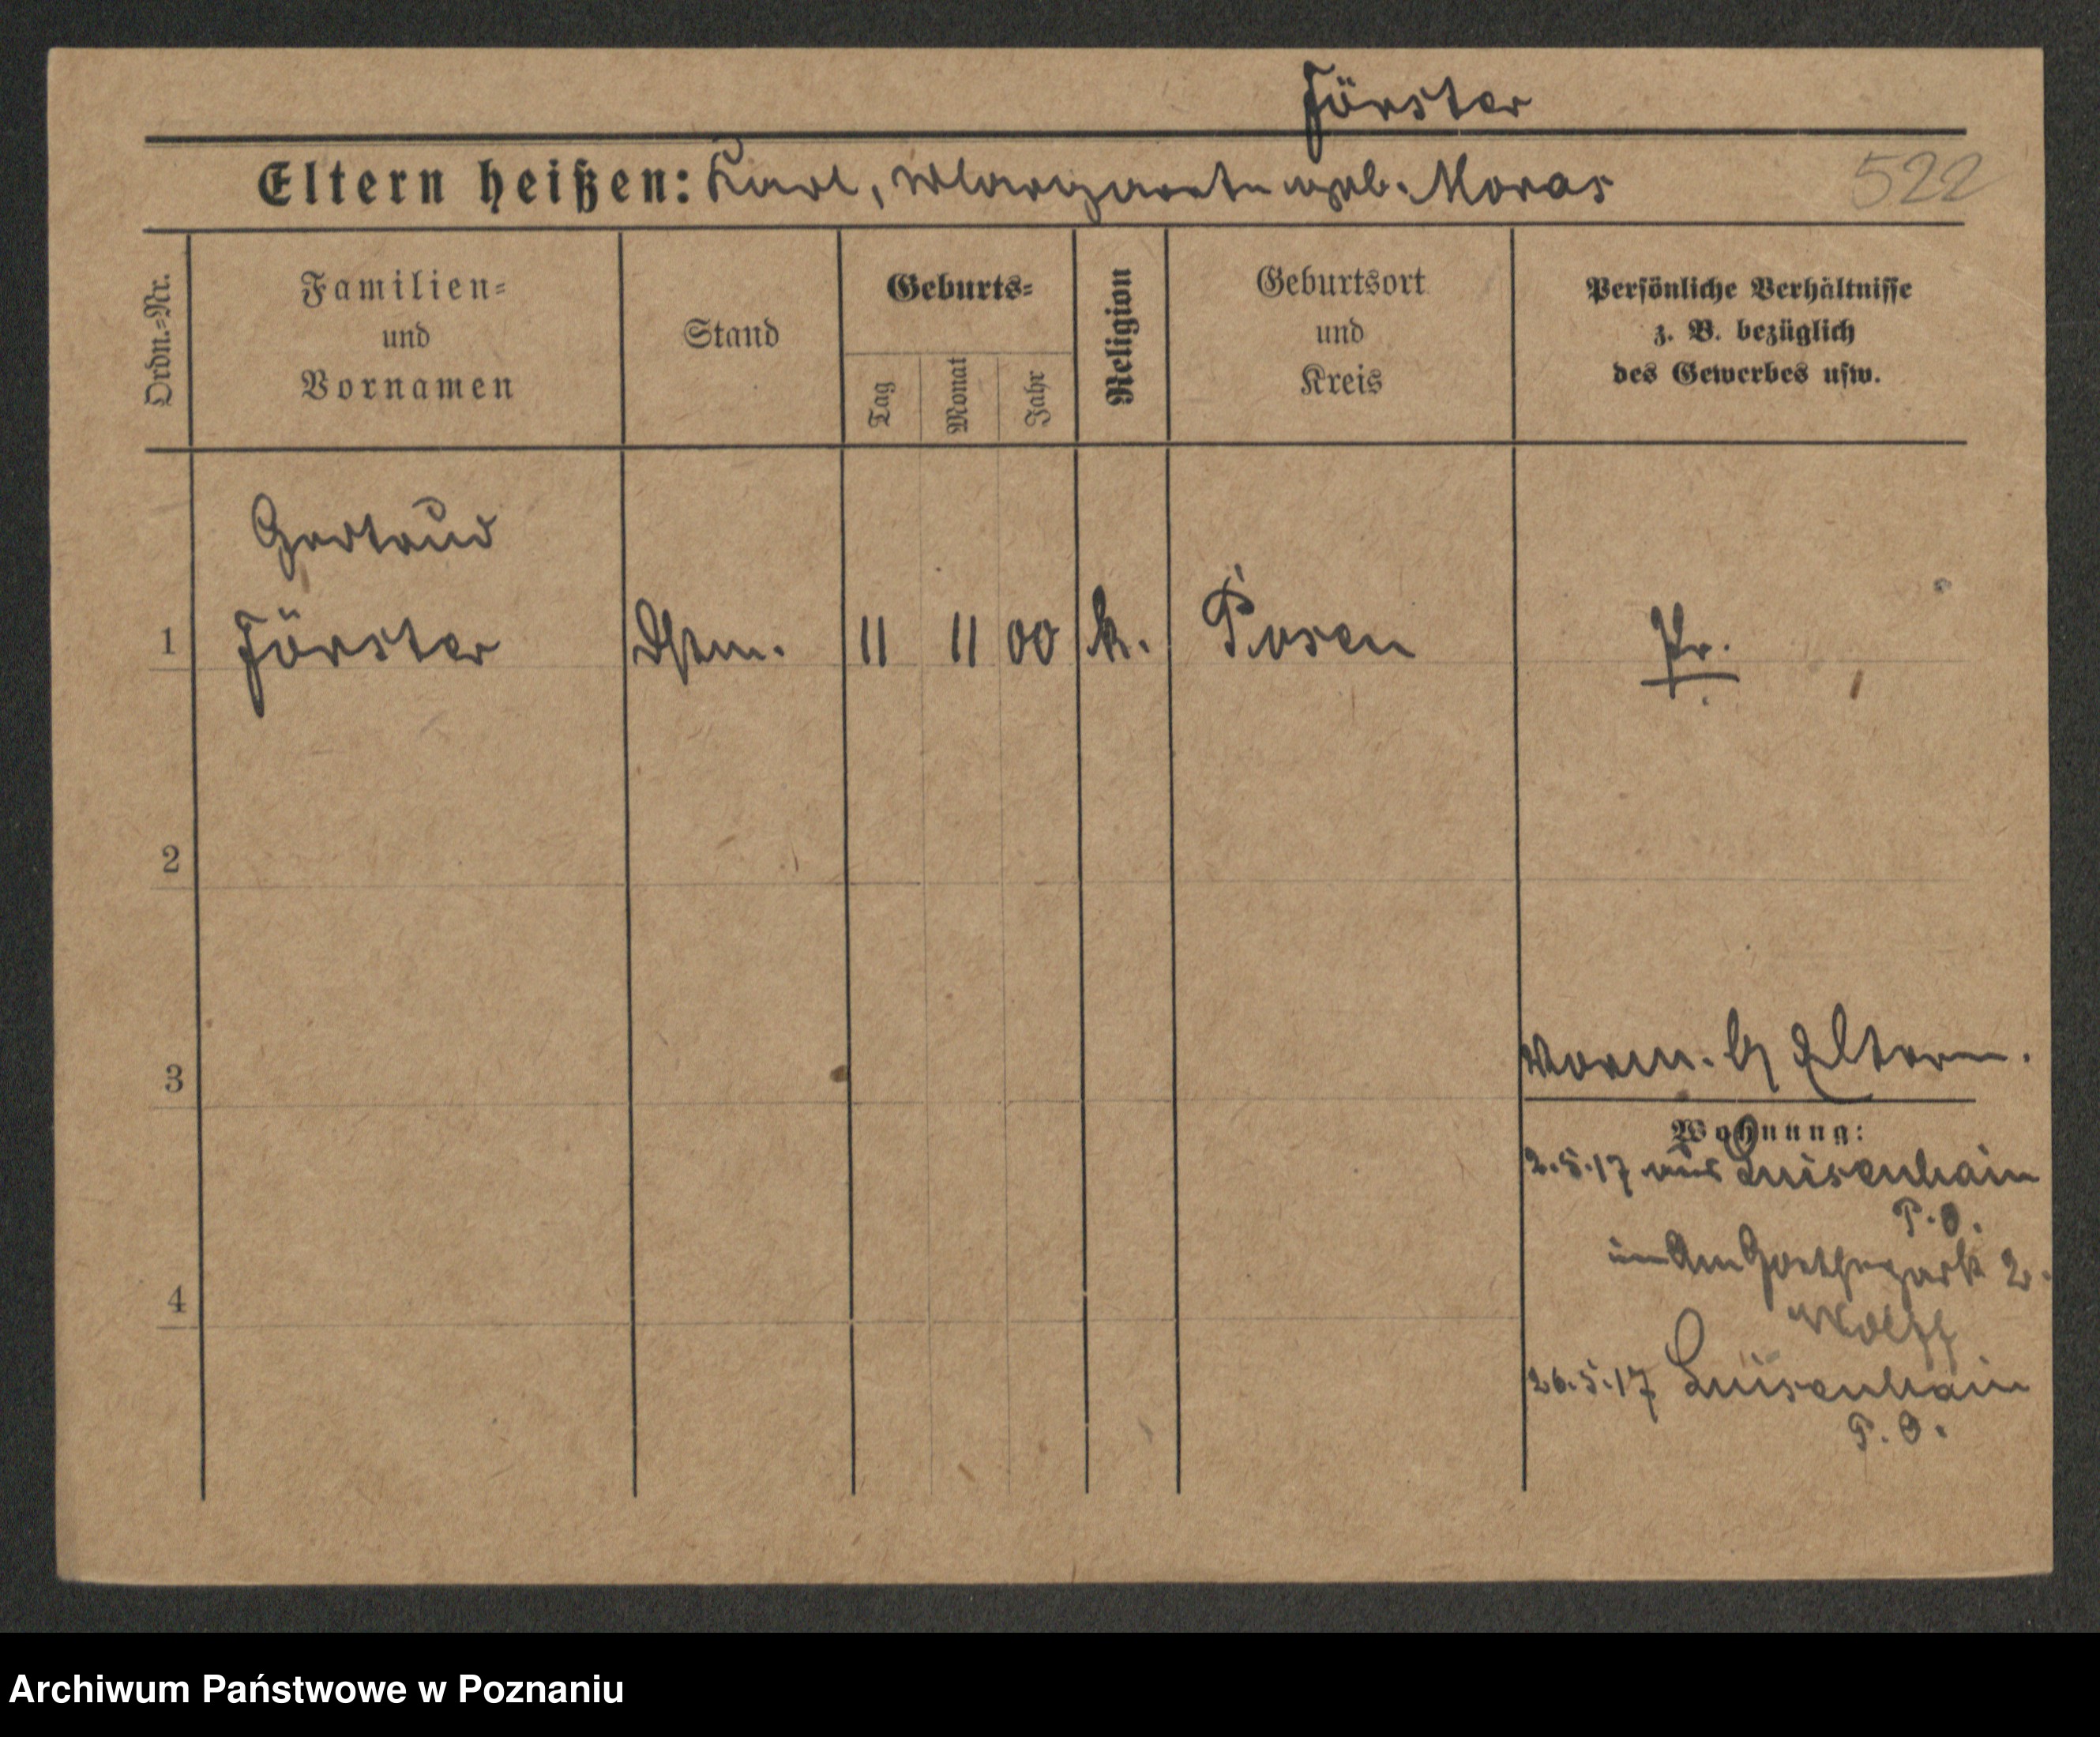 Förster
Eltern heißen: Karl, Margarete geb. Moras
522
Ordn.=Nr.
Familien=
und
Vornamen
Stand
Geburts=
Tag
Monat
Jahr
Religion
Geburtsort
und
Kreis
Persönliche Verhältnisse
z. B. bezüglich
des Gewerbes usw.
Gertrud
1 Förster Dstm. 11 11 00 k. Posen Pr.
2
3
Eltern.
Wohnung:
2.5.17 aus Luisenhain
P.O.
in Am Goethepark 2.
Wolff
4
26.5.17 Luisenhain
P.O.
Archiwum Państwowe w Poznaniu